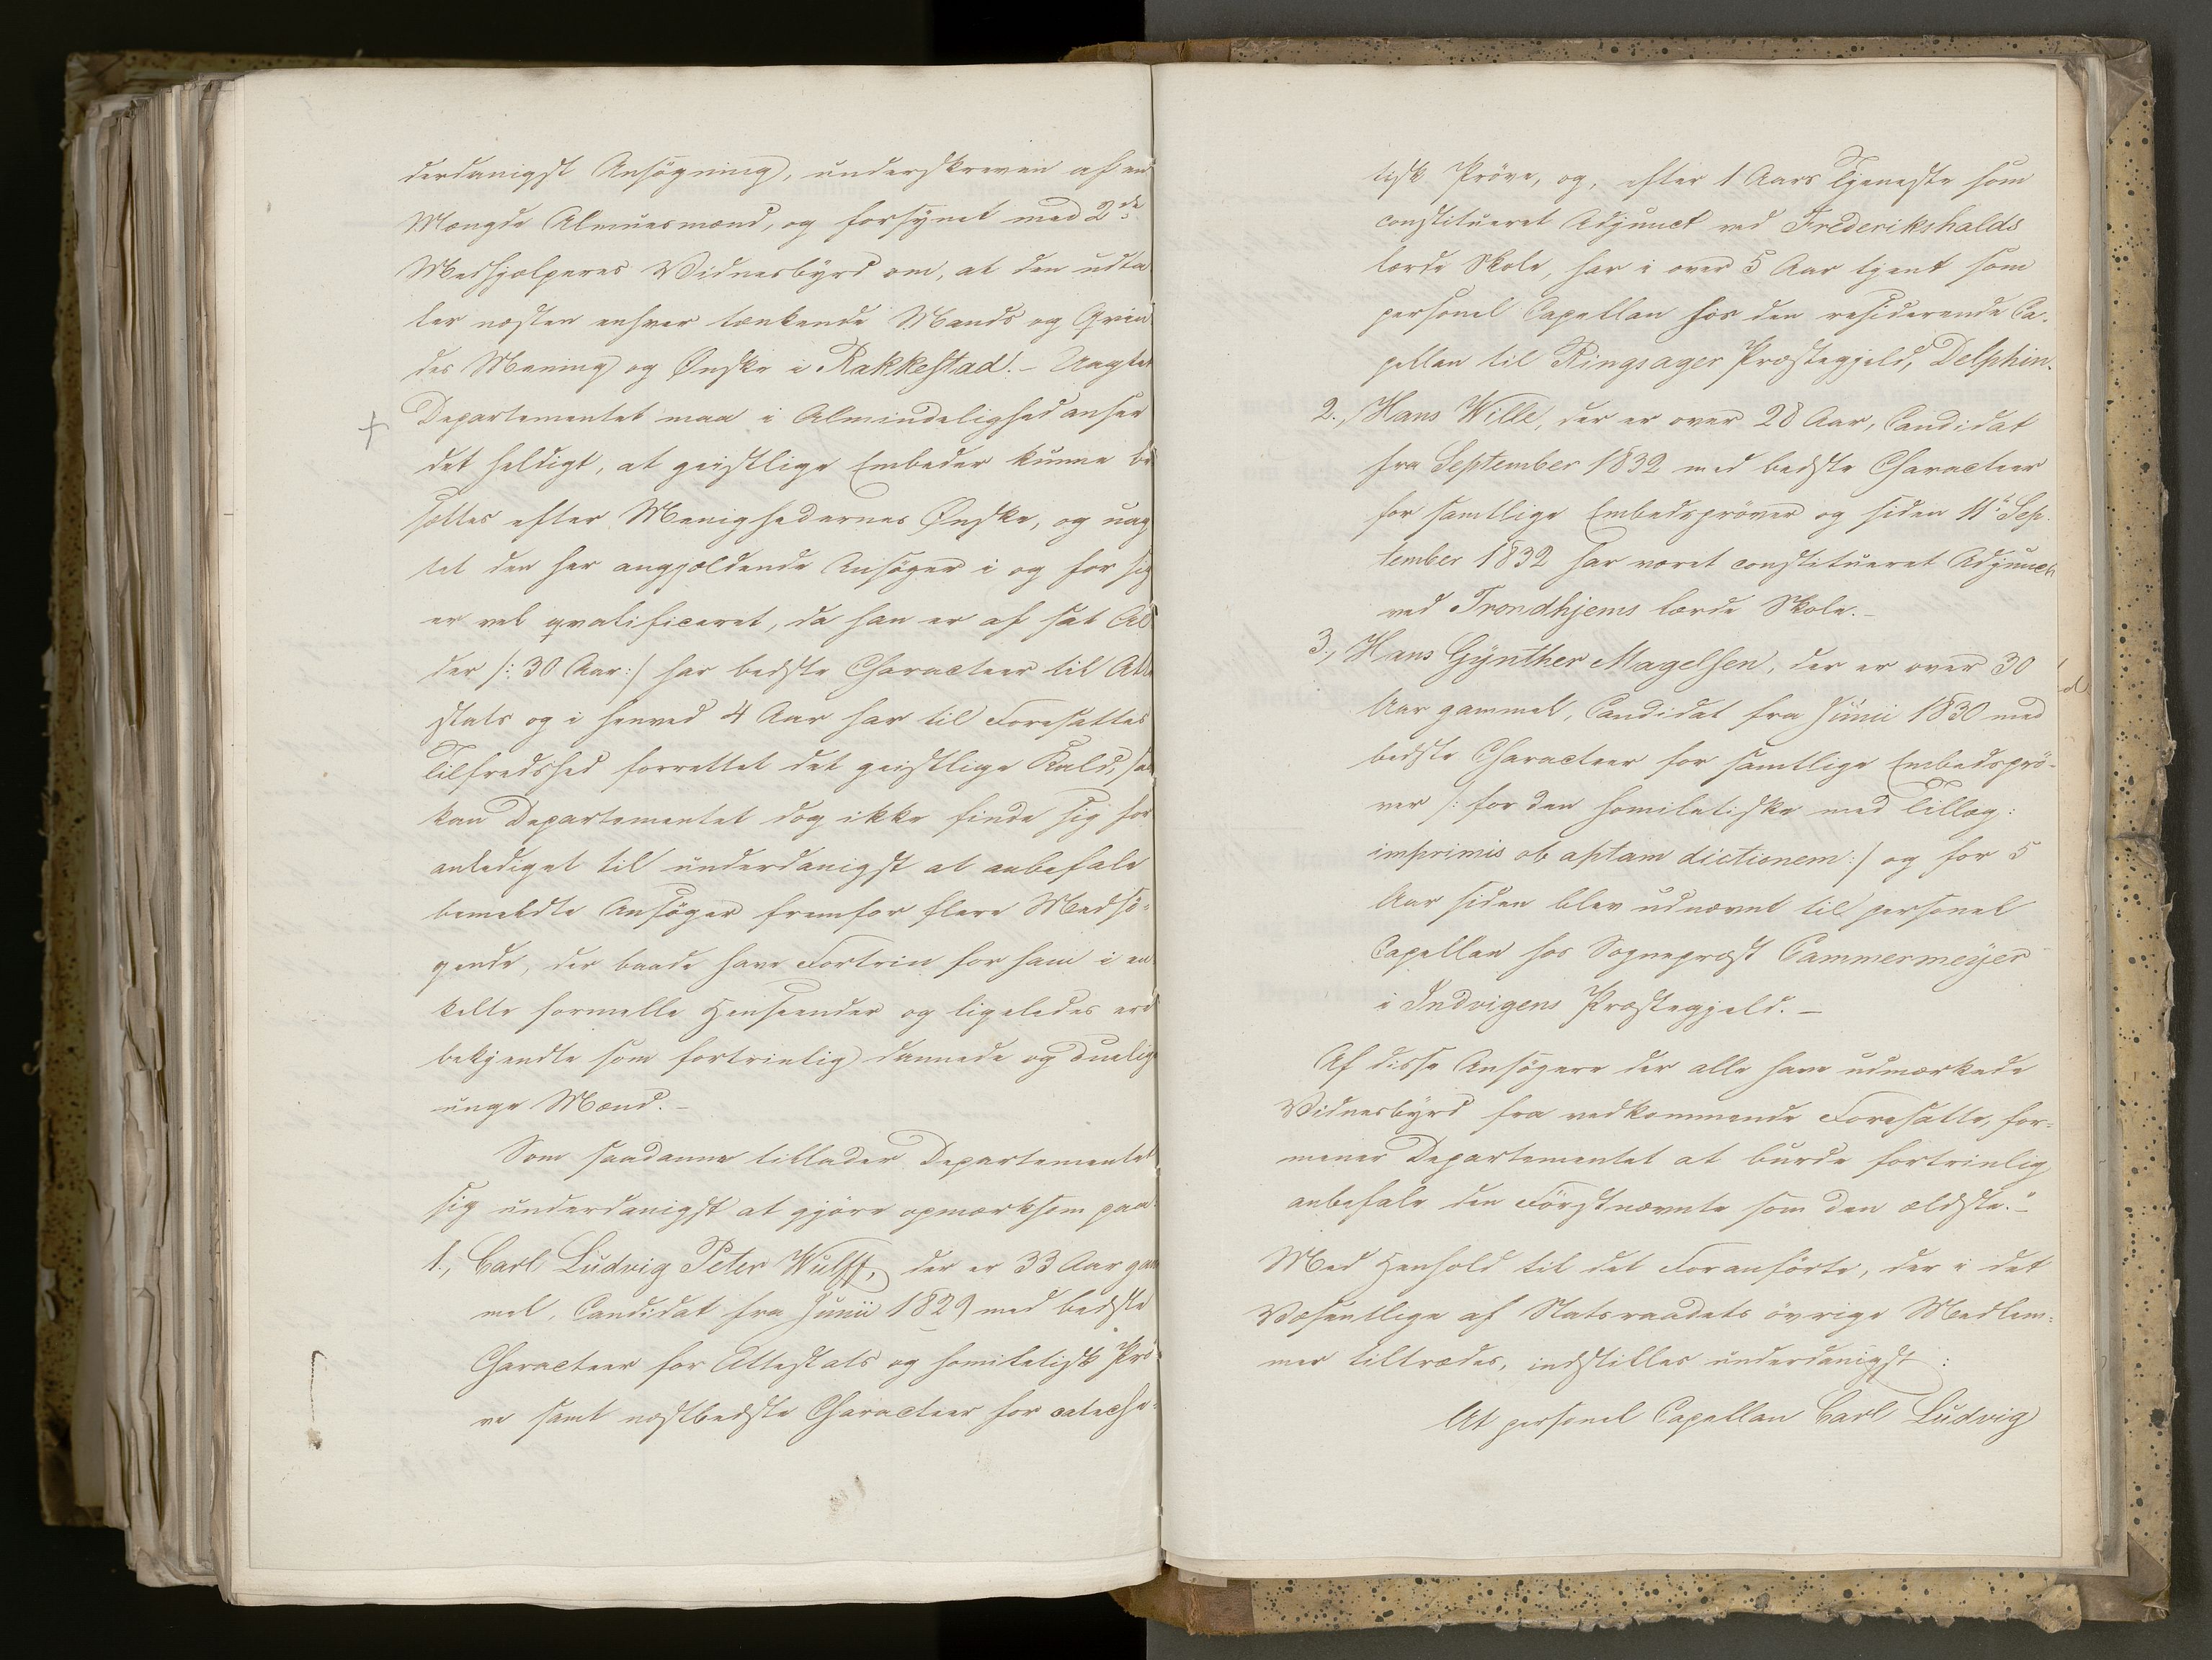 derdanigst Ansögning, underskreven af en
Mængde Almuesmænd, og forsynet med 2de
Medhjælperes Vidnesbyrd om, at den udta
ler næsten enhver tænkende Mands og Qvin
des Mening og Ønske i Rakkestad. – Uagtet
Departementet maa i Almindelighed ansee
det heldigt, at geistlige Embeder kunne be
sættes efter Menighedernes Ønske, og uag
tet den her angjældende Ansöger i og for sig
er vel qvalificeret, da han er af sat Al
der /: 30 Aar :/ har bedste Characteer til Atte
stats og i henved 4 Aar har til Foresattes
Tilfredshed forrettet det geistlige Kald, saa
kan Departementet dog ikke finde sig for
anlediget til underdanigst at anbefale
bemeldte Ansöger fremfor flere Medsö-
gende, der baade have Fortrin for ham i en
kelte formelle Henseender og ligeledes ere
bekjendte som fortrinlig dannede og duelige
unge Mænd. –
Som saadanne tillader Departementet
sig underdanigst at gjöre opmærksom paa
1., Carl Ludvig Peter Wulff, der er 33 Aar gam
mel, Candidat fra Junii 1829 med bedste
Characteer for Attestats og homiletisk Prö
ve samt næstbedste Characteer for cateche-
tisk Pröve, og, efter 1 Aars Tjeneste som
constitueret Adjunct ved Frederikshalds
lærde Skole, har i over 5 Aar tjent som
personel Capellan hos den residerende Ca-
pellan til Ringsager Præstegjeld, Delphin.
2., Hans Wille, der er over 28 Aar, Candidat
fra September 1832 med bedste Characteer
for samtlige Embedsprøver og siden 11te Sep-
tember 1832 har været constitueret Adjunct
ved Trondhjems lærde Skole. –
3., Hans Gynther Magelssen, der er over 30
Aar gammel, Candidat fra Junii 1830 med
bedste Characteer for samtlige Embedsprö-
ver /: for den homiletiske med Tillæg:
imprimis ob aptam dictionem :/ og for 5
Aar siden blev udnævnt til personel
Capellan hos Sognepræst Cammermeyer
i Indvigens Præstegjeld. –
Af disse Ansögere der alle have udmærkede
Vidnesbyrd fra vedkommende Foresatte, for-
mener Departementet at burde fortrinlig
anbefale den Förstnævnte som den ældste." –
Med Henhold til det Foranförte, der i det
Væsentlige af Statsraadets övrige Medlem-
mer tiltrædes, indstilles underdanigst :
At personel Capellan Carl Ludvig